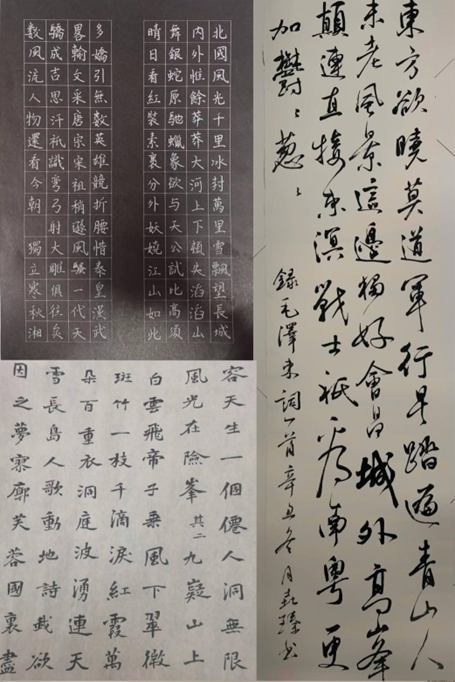 東方欲曉莫道軍行早踏遍青山人
未老風景這邊獨好會昌城外高峰
顛連直接東溟戰士祇看南粵更
加鬱〻葱〻
錄毛澤東詞一首辛丑冬月書
北國風光千里冰封萬里雪飄望長城
内外惟餘莽莽大河上下頓失滔滔山
舞銀蛇原馳蠟象欲与天公試比高須
晴日看紅裝素裹分外妖嬈江山如此
多嬌引無數英雄競折腰惜秦皇漢武
畧輸文采唐宗宋祖稍遜風騷一代天
驕成吉思汗衹識彎弓射大雕俱往矣
數風流人物還看今朝 獨立寒秋湘
容天生一個僊人洞無限
風光在險峯其二九嶷山上
白雲飛帝子乘風下翠微
斑竹一枝千滴淚紅霞萬
朵百重衣洞庭波湧連天
雪長島人歌動地詩我欲
因之夢寥廓芙蓉國裏盡